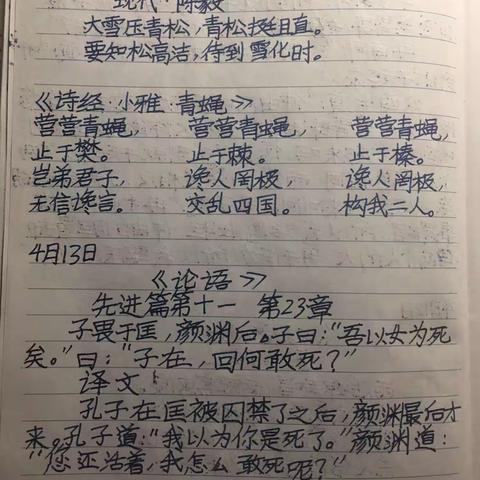 现代·陈毅
大雪压青松，青松挺且直。
要知松高洁，待到雪化时。
《诗经·小雅·青蝇》
营营青蝇， 营营青蝇， 营营青蝇，
止于樊。 止于棘。 止于榛。
岂弟君子， 谗人罔极， 谗人罔极，
无信谗言。 交乱四国。 构我二人。
4月13日
《论语》
先进篇第十一 第23章
子畏于匡，颜渊后。子曰：“吾以女为死
矣。”曰：“子在，回何敢死？”
译文
孔子在匡被囚禁了之后，颜渊最后才
来。孔子道：“我以为你是死了。”颜渊道：
“您还活着，我怎么敢死呢？”